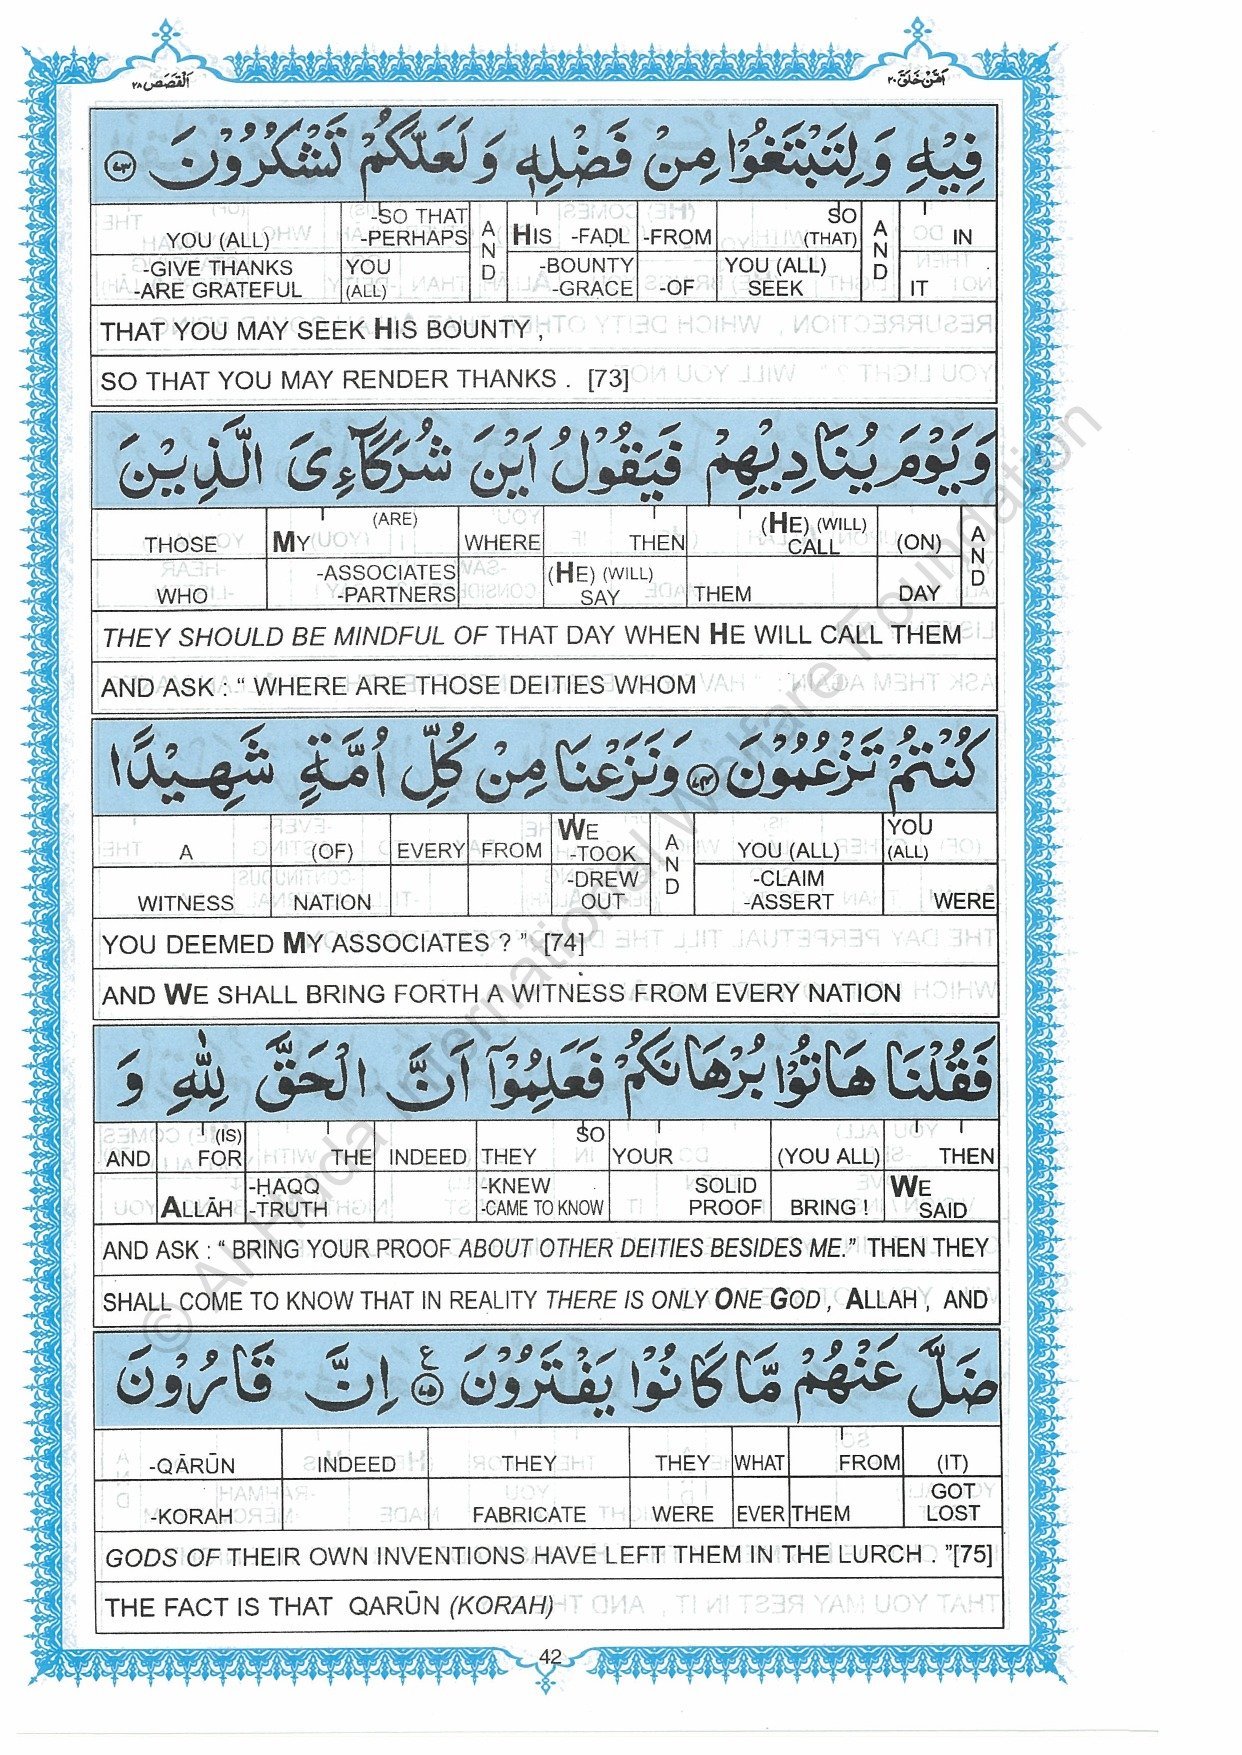 اَمَّنْ خَلَقَ ٢٠
اَلْقَصَصِ ٢٨
فِيْهِ وَ لِتَبْتَغُوْا مِنْ فَضْلِهٖ وَ لَعَلَّكُمْ تَشْكُرُوْنَ ٧٣
YOU (ALL) -SO THAT -PERHAPS AND HIS -FAḌL -FROM SO (THAT) AND IN
-GIVE THANKS -ARE GRATEFUL YOU (ALL) -BOUNTY -GRACE -OF YOU (ALL) SEEK IT
THAT YOU MAY SEEK HIS BOUNTY ,
SO THAT YOU MAY RENDER THANKS . [73]
وَ يَوْمَ يُنَادِيْهِمْ فَيَقُوْلُ اَيْنَ شُرَكَآءِىَ الَّذِيْنَ
THOSE MY (ARE) WHERE THEN (HE) (WILL) CALL (ON) AND
WHO -ASSOCIATES -PARTNERS (HE) (WILL) SAY THEM DAY
THEY SHOULD BE MINDFUL OF THAT DAY WHEN HE WILL CALL THEM
AND ASK : “ WHERE ARE THOSE DEITIES WHOM
كُنْتُمْ تَزْعُمُوْنَ ٧٤ وَ نَزَعْنَا مِنْ كُلِّ اُمَّةٍ شَهِيْدًا
A (OF) EVERY FROM WE -TOOK AND YOU (ALL) YOU (ALL)
WITNESS NATION -DREW OUT -CLAIM -ASSERT WERE
YOU DEEMED MY ASSOCIATES ? ” [74]
AND WE SHALL BRING FORTH A WITNESS FROM EVERY NATION
فَقُلْنَا هَاتُوْا بُرْهَانَكُمْ فَعَلِمُوْٓا اَنَّ الْحَقَّ لِلّٰهِ وَ
AND (IS) FOR THE INDEED SO THEY YOUR (YOU ALL) THEN
ALLĀH -ḤAQQ -TRUTH -KNEW -CAME TO KNOW SOLID PROOF BRING ! WE SAID
AND ASK : “ BRING YOUR PROOF ABOUT OTHER DEITIES BESIDES ME.” THEN THEY
SHALL COME TO KNOW THAT IN REALITY THERE IS ONLY ONE GOD , ALLAH , AND
ضَلَّ عَنْهُمْ مَّا كَانُوْا يَفْتَرُوْنَ ٧٥ ع اِنَّ قَارُوْنَ
-QĀRŪN INDEED THEY THEY WHAT FROM (IT)
-KORAH FABRICATE WERE EVER THEM GOT LOST
GODS OF THEIR OWN INVENTIONS HAVE LEFT THEM IN THE LURCH . ”[75]
THE FACT IS THAT QARŪN (KORAH)
42
© Al Huda International Welfare Foundation